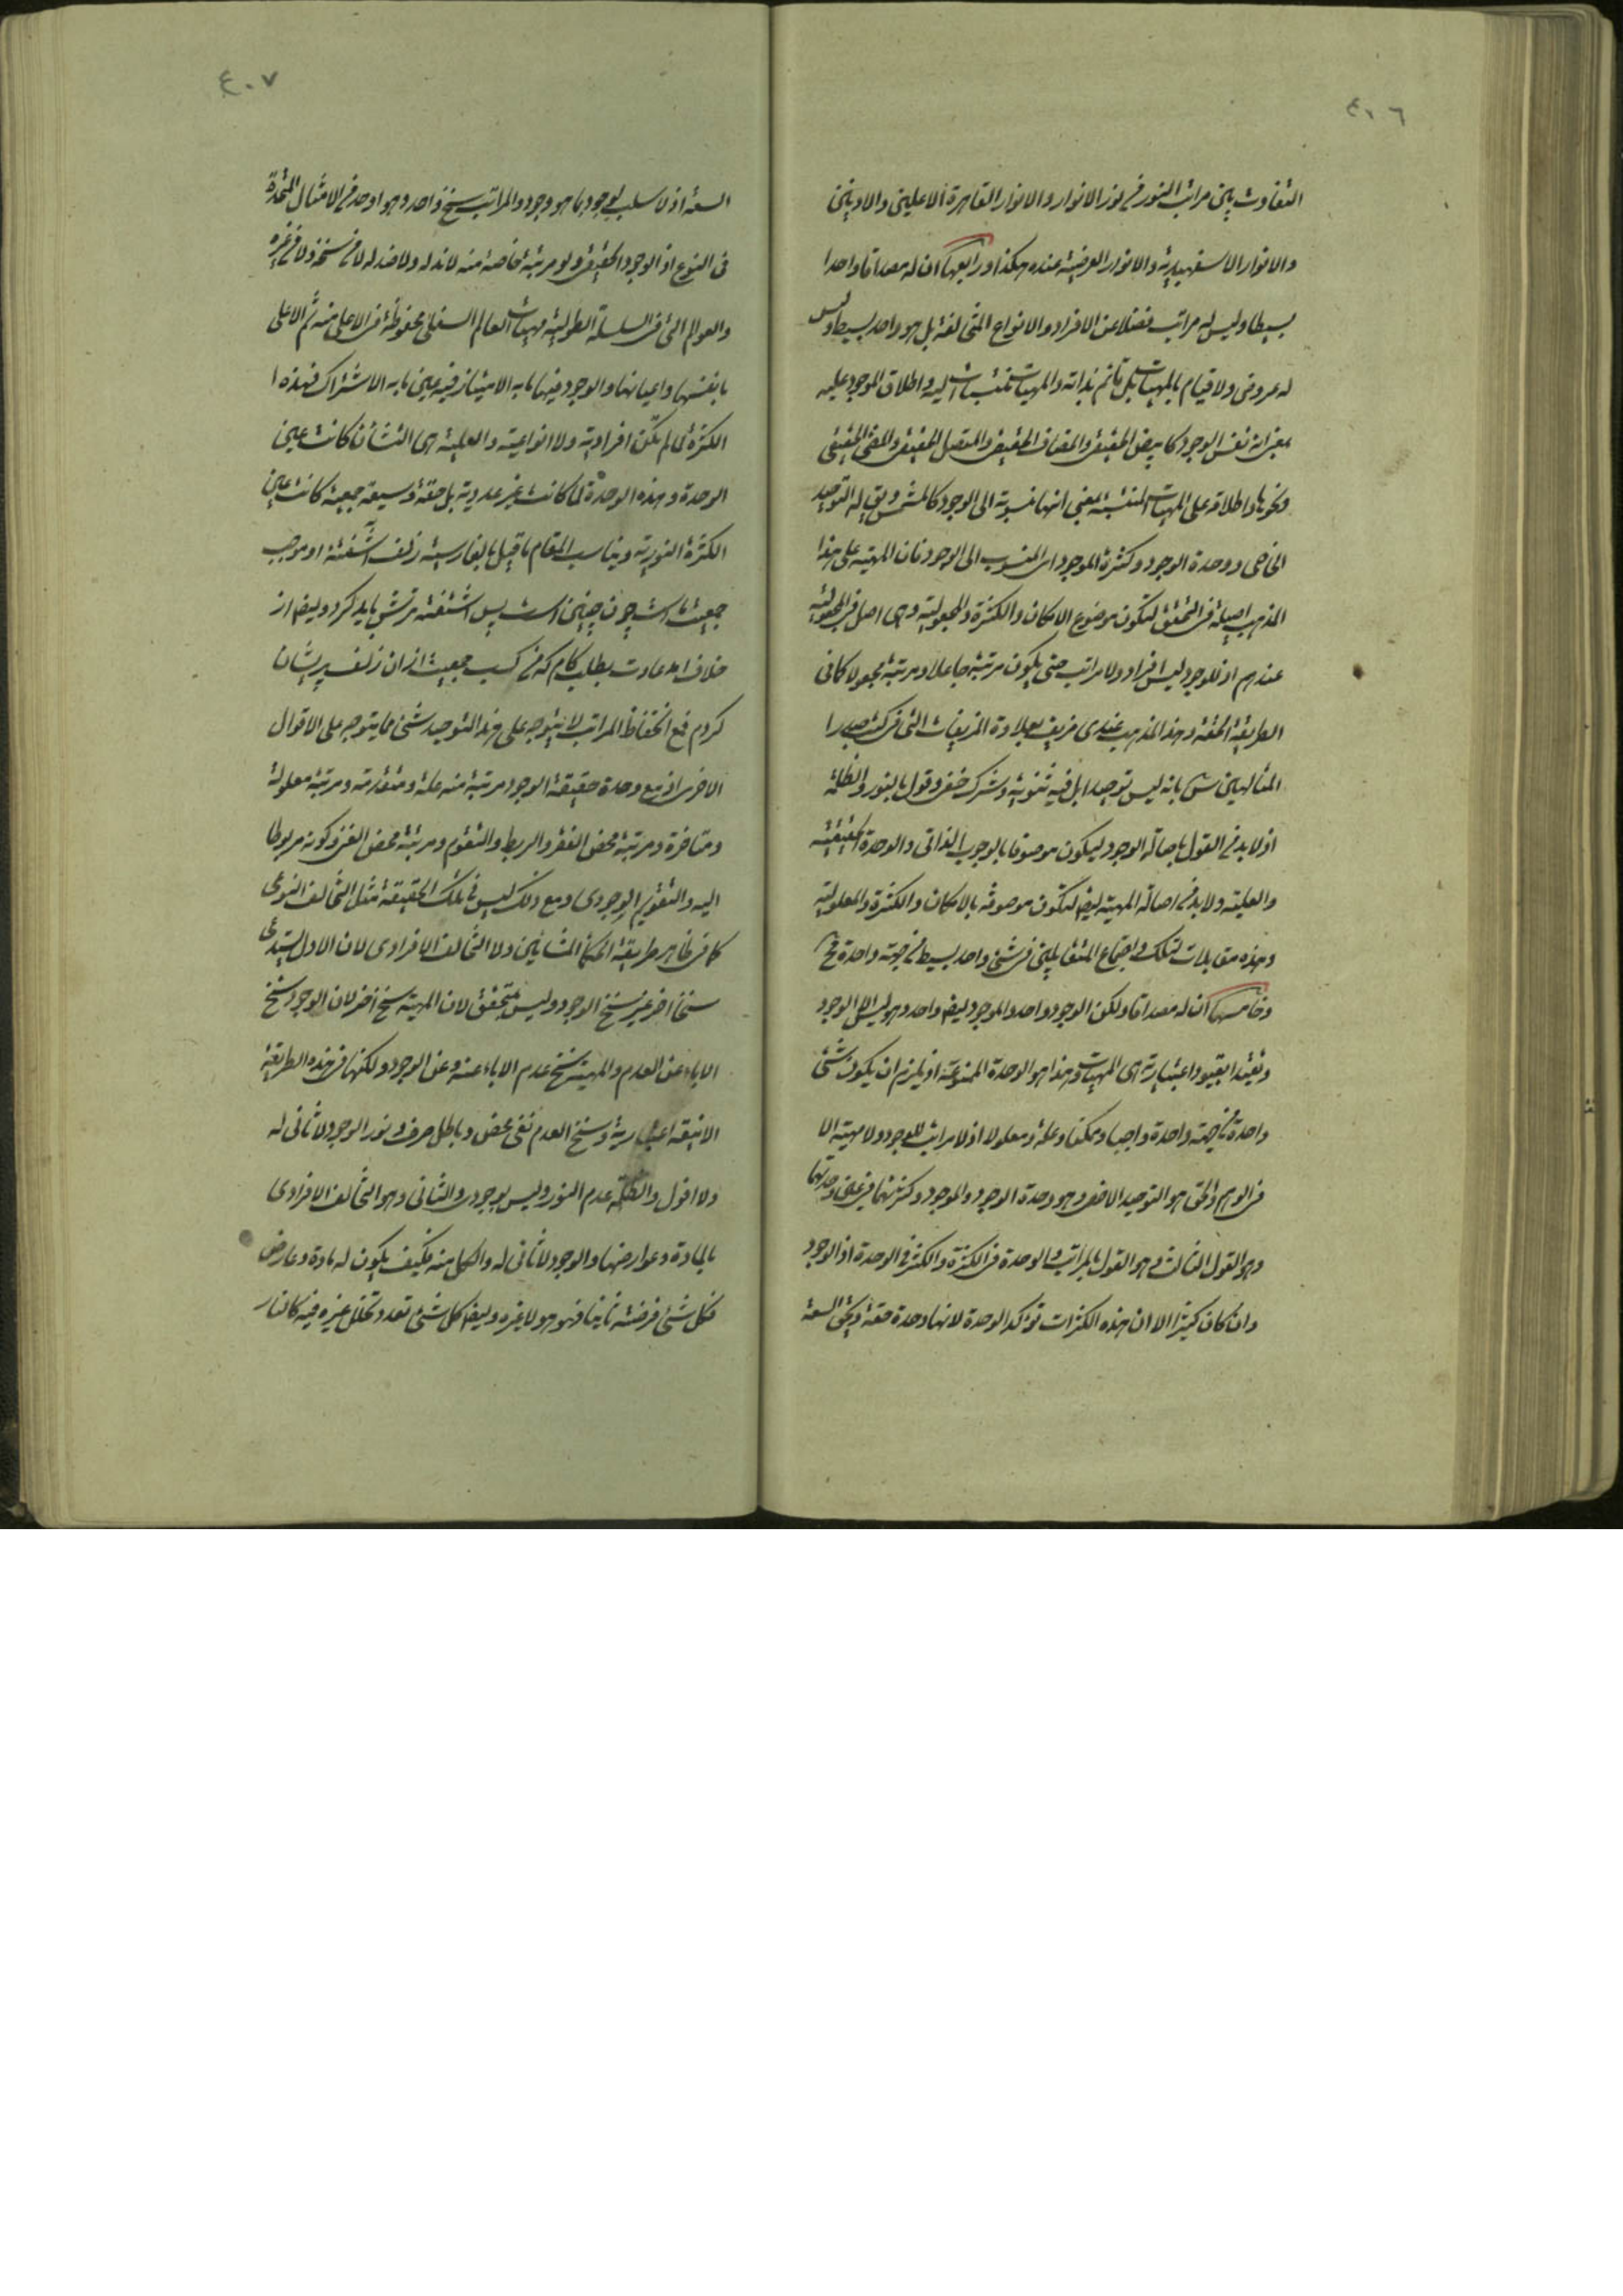 ٤٠٦
التفاوت بين مراتب النور فى نور الانوار والانوار القاهرة الاعلين والادنين
والانوار الاسفهبدية والانوار العرضية عنده هكذا ورابعها ان له مصداقا واحدا
بسيطا وليس له مراتب فضلا عن الافراد والانواع المتخالفة بل هو واحد بسيط وليس
له عروض ولا قيام بالمهيات بل قائم بذاته والمهيات منتسبات اليه واطلاق الموجود عليه
بمعنى انه نفس الوجود كابيض الحقيقى والمضاف الحقيقى والمتصل الحقيقى والمضئ الحقيقى
ونحوها واطلاقه على المهيات المنتسبة بمعنى انها منسوبة الى الوجود كالمشمس ويق له التوحيد
الخاصى ووحدة الوجود وكثرة الموجود اى المنسوب الى الوجود فان المهية على هذا
المذهب اصيلة فى التحقق لتكون موضوع الامكان والكثرة والمجعولية وهى اصل فى المجعولية
عندهم اذ للوجود ليس افراد ولا مراتب حتى يكون مرتبة جاعلا ومرتبة مجعولا كما فى
الطريقة الحقة وهذا المذهب عندى مزيف بعلاوة المزيفات التى فى كتب صدر
المتالهين س بانه ليس توحيدا بل فيه ثنوية وشرك خفى وقول بالنور والظلمة
اذ لابد فى القول باصالة الوجود ليكون موصوفا بالوجوب الذاتى والوحدة الحقيقية
والعلية ولابد فى اصالة المهية ايضا لتكون موصوفة بالامكان والكثرة والمعلولية
وهذه مقابلات لتلك واجتماع المتقابلين فى شئ واحد بسيط فى جهة واحدة مح
وخامسها ان له مصداقا ولكن الوجود واحد والموجود ايضا واحد وهو ليس الا الوجود
وتقيد بقيود اعتبارية هى المهيات وهذا هو الوحدة الممنوعة اذ يلزم ان يكون شئ
واحد فى جهة واحدة واجبا وممكنا وعلة ومعلولا اذ لا مراتب للوجود ولا مهية الا
فى الوهم والحق هو التوحيد الاخصى وهو وحدة الوجود والموجود وكثرتهما فى عين وحدتهما
وهو القول الثالث وهو القول بالمراتب والوحدة فى الكثرة والكثرة فى الوحدة اذ الوجود
وان كان كثيرا الا ان هذه الكثرات تؤكد الوحدة لانها وحدة حقة وبحكم السعة
٤٠٧
السعة اذ لا سلب لوجود بما هو وجود والمراتب سنخ واحد وهو اوحد فى الامثال المتحدة
فى النوع اذ الوجود الحقيقى ولو مرتبة خاصة منه لا ند له ولا ضد له لا فى سنخه ولا فى غيره
والعوالم التى فى السلسلة الطولية مهيات العالم السفلى محفوظة فى الاعلى منه ثم الاعلى
بانفسها واعيانها والوجود فيها ما به الامتياز فيه عين ما به الاشتراك فهذه
الكثرة لما لم تكن افرادية ولا انواعية والعلية هى التشان كانت عين
الوحدة وهذه الوحدة لما كانت غير عددية بل حقة وسيعة جمعية كانت عين
الكثرة النورية ويناسب المقام ما قيل بالفارسية زلف آشفته او موجب
جمعيت ماست چون چنين است پس آشفته ترش بايد كرد وايضا از
خلاف آمد عادت بطلب كام كه من كسب جمعيت از آن زلف پريشان
كردم فمع انحفاظ المراتب لا يتوجه على هذا التوحيد شئ مما يتوجه على الاقوال
الاخرى اذ مع وحدة حقيقة الوجود مرتبة منه علة ومتقدمة ومرتبة معلولة
ومتاخرة ومرتبة محض الفقر والربط والتقوم ومرتبة محض الغنى وكونه مربوطا
اليه والتقويم الوجودى ومع ذلك ليس فى تلك الحقيقة مثل التخالف النوعى
كما فى ظاهر طريقة الحكماء المشائين ولا التخالف الافرادى لان الاول يستدعى
سنخا اخر غير سنخ الوجود وليس بمتحقق لان المهية سنخ اخر لان الوجود سنخ
الاباء عن العدم والمهية سنخ عدم الاباء عنه وعن الوجود ولكنها فى هذه الطريقة
الانيقة اعتبارية وسنخ العدم نفى محض وباطل صرف ونور الوجود لا ثانى له
ولا افول والظلمة عدم النور وليس بوجود والثانى وهو التخالف الافرادى
بالمادة وعوارضها والوجود لا ثانى له والكل منه فكيف يكون له مادة وعارض
فكل شئ فرضته ثانيا فهو هو لا غيره وايضا كل شئ تعدد تخلل غيره فيه كالنار